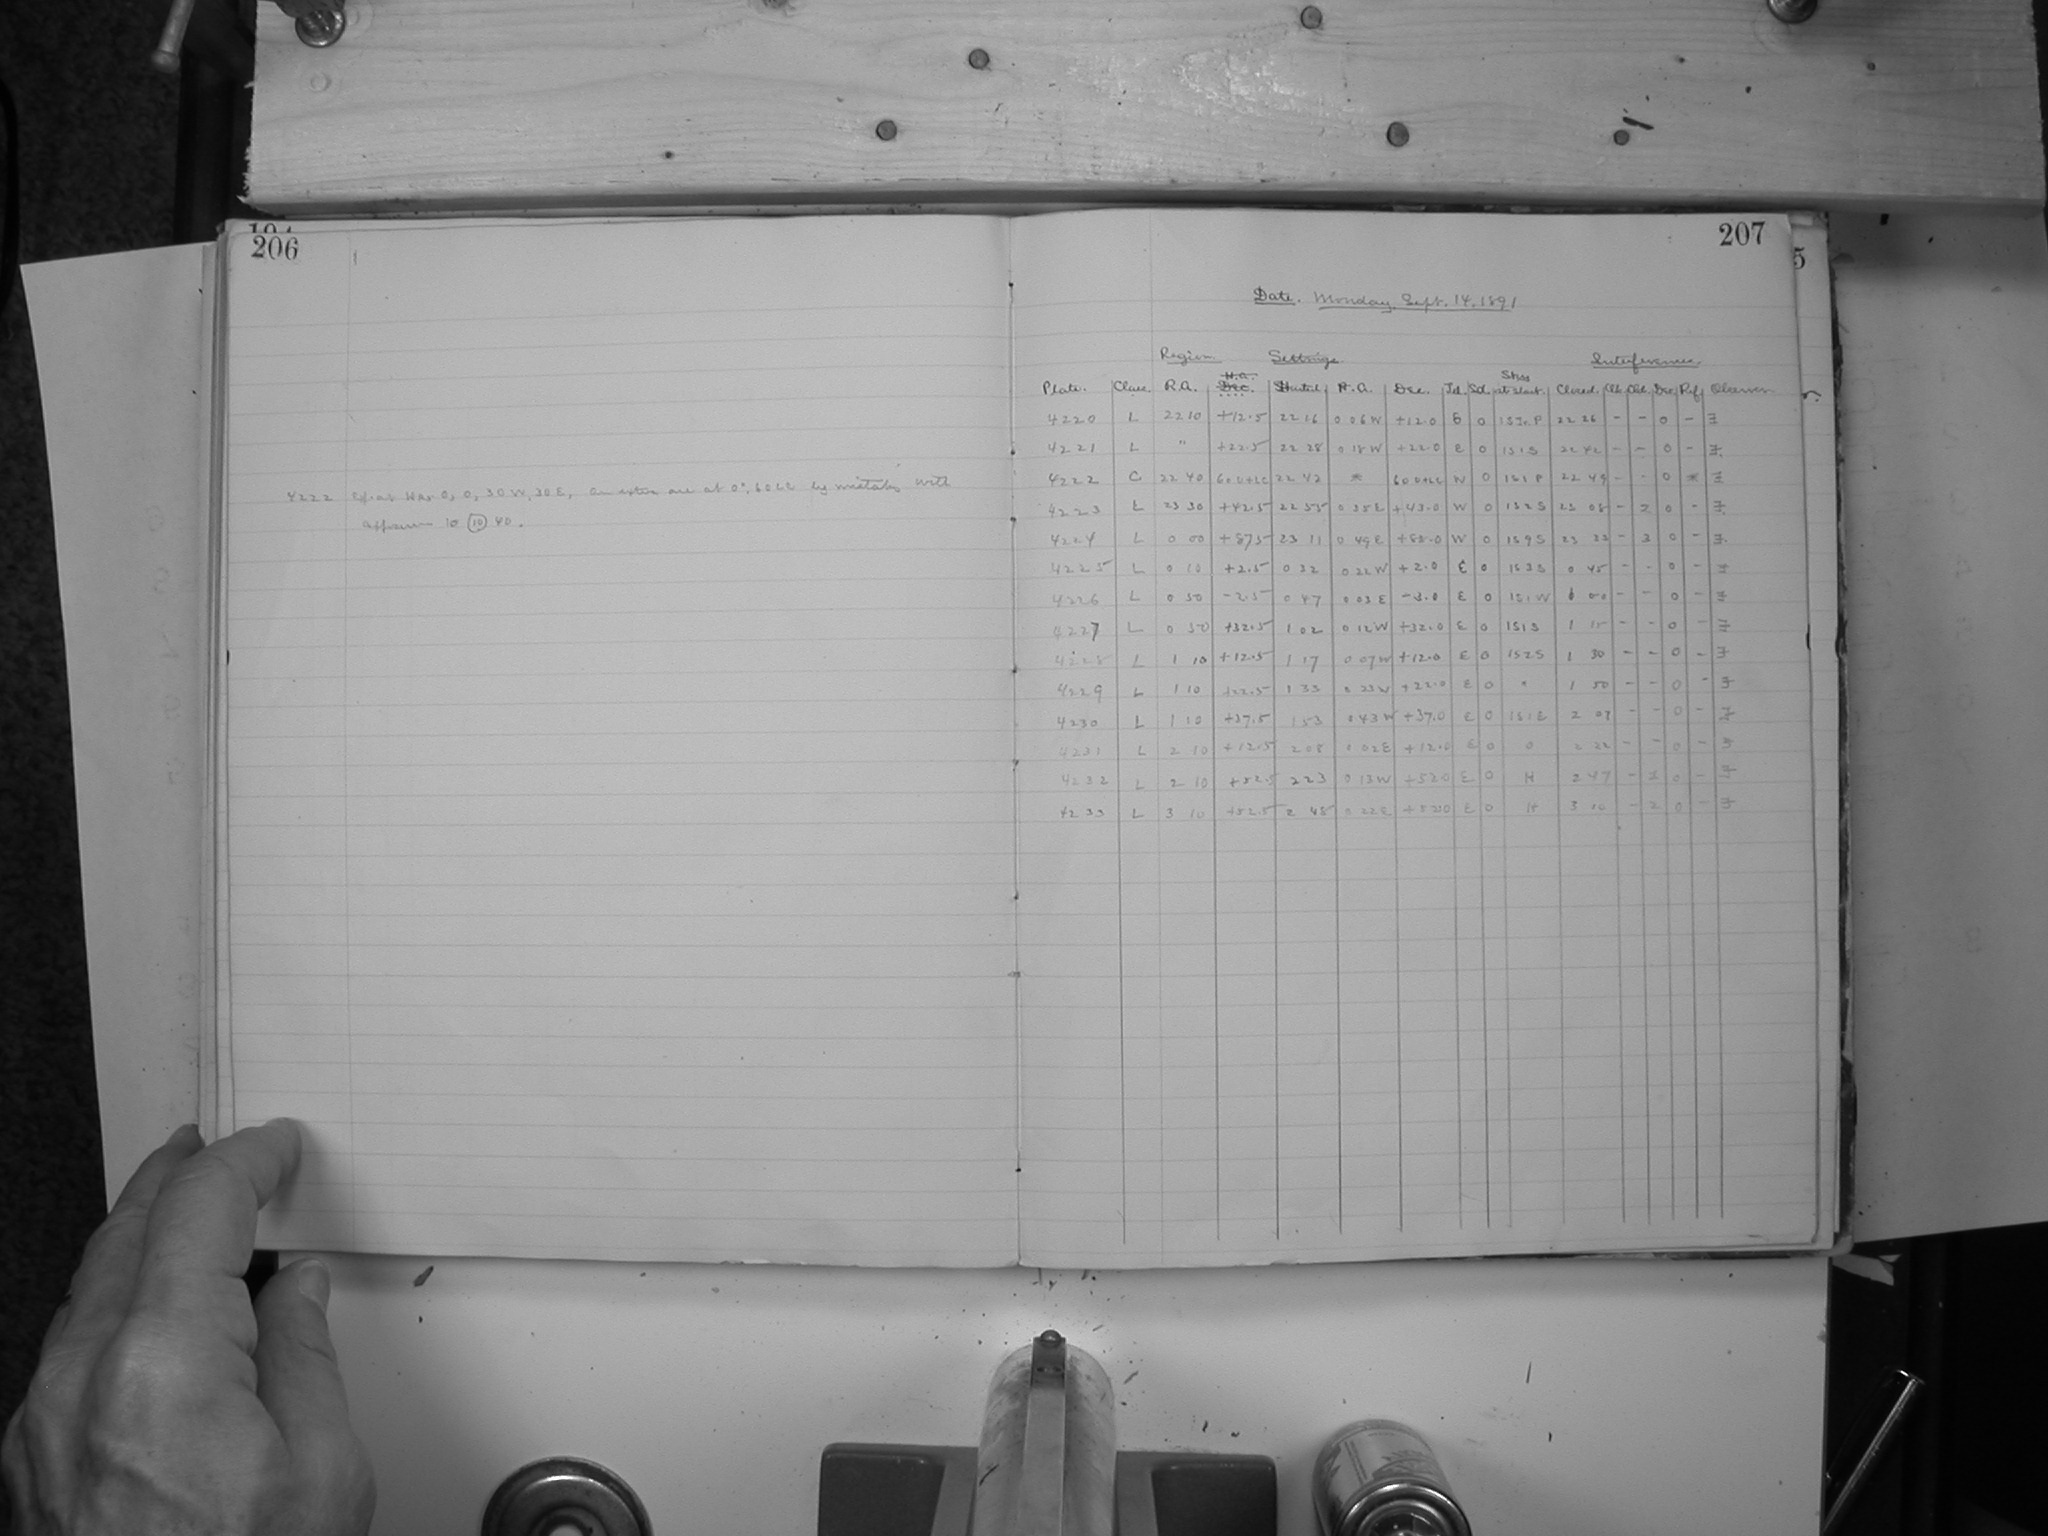 206
207
Date. Monday, Sept. 14, 1891
Region. Settings. Interference.
Plate. Class R.A. Dec. Started H.A. Dec. Stars at start. Closed. Observer
4220 L 22 10 +12.5 22 16 0 06 W +12.0 E 0 22 26 - - 0 -
4221 L " +22.5 22 28 0 18 W +22.0 E 0 1S1S 22 42 - - 0 -
4222 C 22 40 22 42 * W 0 22 49 - - 0 *
4223 L 23 30 +42.5 22 55 0 35 E +43.0 W 0 1S2S 23 08 - 2 0 -
4224 L 0 00 +87.5 23 11 0 49 E +88.0 W 0 1S9S 23 22 - 3 0 -
4225 L 0 10 +2.5 0 32 0 22 W +2.0 E 0 1S3S 0 45 - - 0 -
4226 L 0 50 -2.5 0 47 0 03 E -3.0 E 0 1S1W 1 00 - - 0 -
4227 L 0 50 +32.5 1 02 0 12 W +32.0 E 0 1S1S 1 15 - - 0 -
4228 L 1 10 +12.5 1 17 0 07 W +12.0 E 0 1S2S 1 30 - - 0 -
4229 L 1 10 +22.5 1 33 0 23 W +22.0 E 0 " 1 50 - - 0 -
4230 L 1 10 +37.5 1 53 0 43 W +37.0 E 0 1S1E 2 07 - - 0 -
4231 L 2 10 +12.5 2 08 0 02 E +12.0 E 0 0 2 22 - - 0 -
4232 L 2 10 +52.5 2 23 0 13 W +52.0 E 0 H 2 47 - 2 0 -
4233 L 3 10 +52.5 2 48 0 22 E +52.0 E 0 H 3 10 - 2 0 -
4222 0, 0, 30 W, 30 E, An extra one at 0°, by mistake will
appear 10 (10) 40.